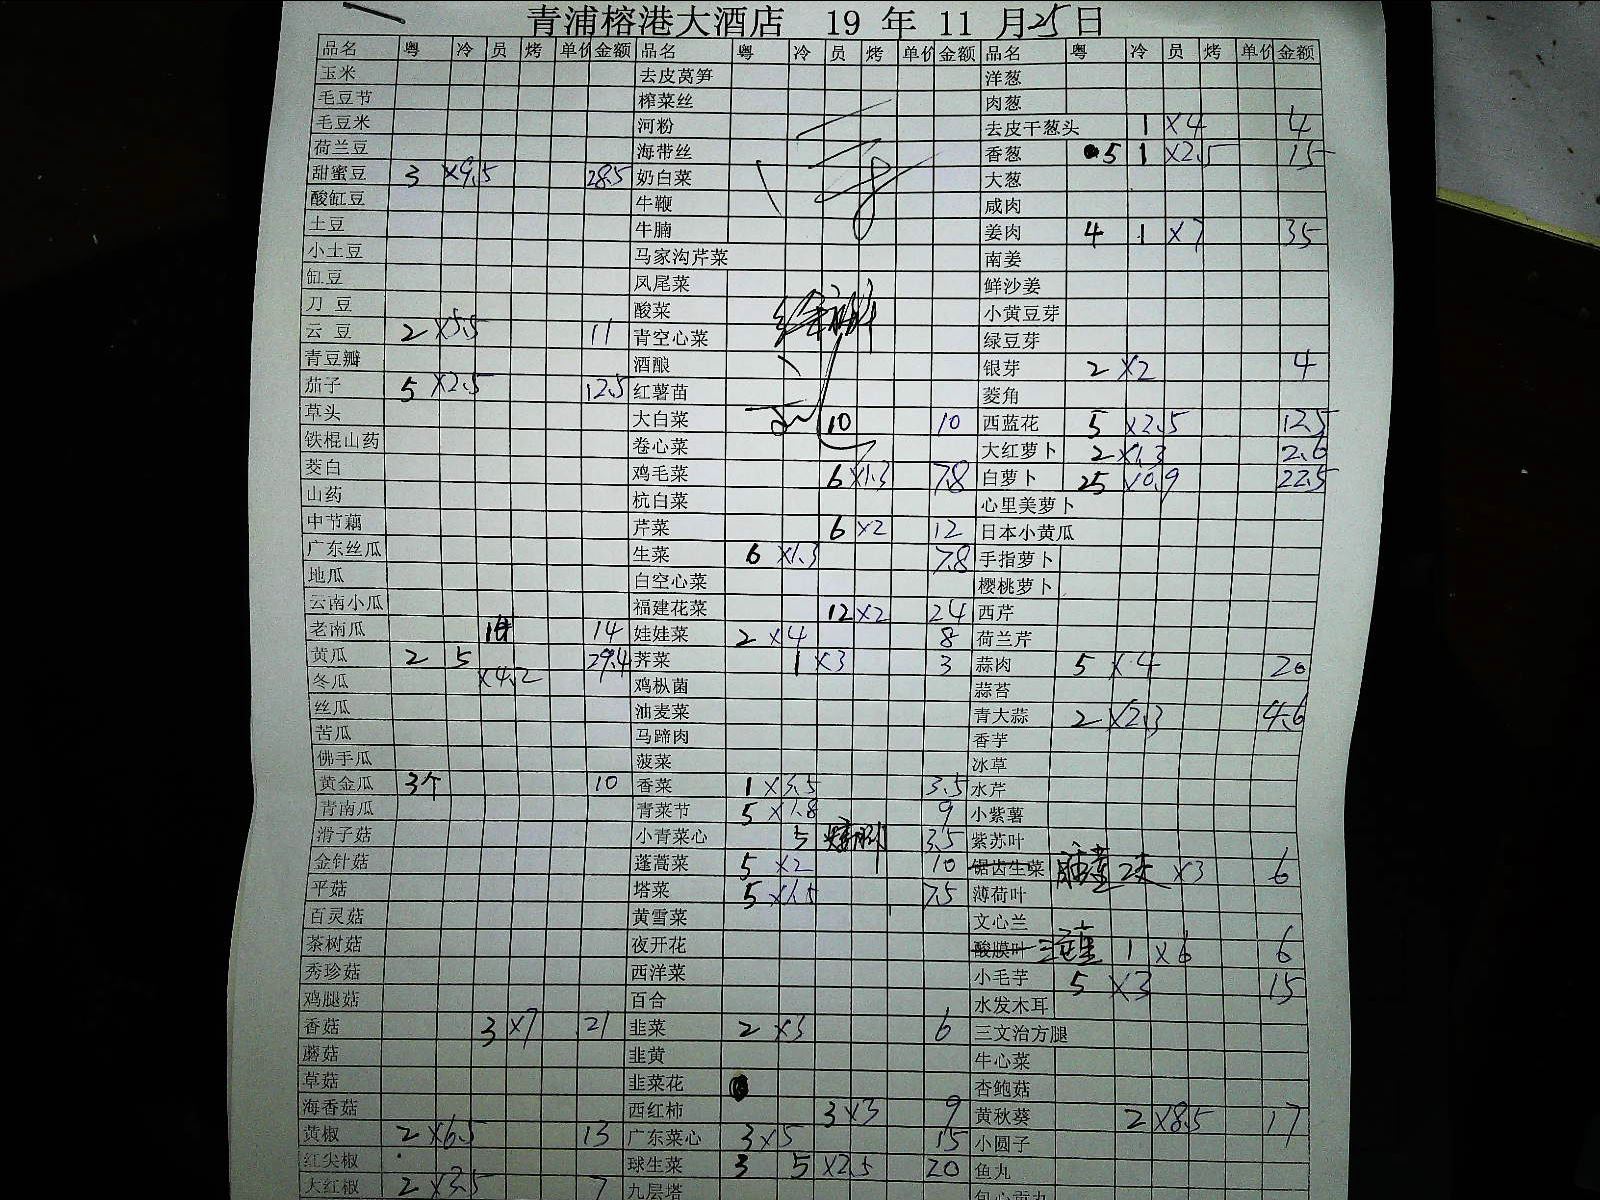 青浦榕港大酒店 19 年 11 月25日
品名 粤 冷 员 烤 单价 金额 品名 粤 冷 员 烤 单价 金额 品名 粤 冷 员 烤 单价 金额
玉米 去皮莴笋 洋葱
毛豆节 榨菜丝 肉葱
毛豆米 河粉 去皮干葱头 1 ×4 4
荷兰豆 海带丝 香葱 5 1 ×2.5 15
甜蜜豆 3 ×9.5 28.5 奶白菜 大葱
酸缸豆 牛鞭 咸肉
土豆 牛腩 姜肉 4 1 ×7 35
小土豆 马家沟芹菜 南姜
缸豆 凤尾菜 鲜沙姜
刀 豆 酸菜 小黄豆芽
云 豆 2 ×5.5 11 青空心菜 绿豆芽
青豆瓣 酒酿 银芽 2 ×2 4
茄子 5 ×2.5 12.5 红薯苗 菱角
草头 大白菜 10 10 西蓝花 5 ×2.5 12.5
铁棍山药 卷心菜 大红萝卜 2 ×1.3 2.6
茭白 鸡毛菜 6 ×1.3 7.8 白萝卜 25 ×0.9 22.5
山药 杭白菜 心里美萝卜
中节藕 芹菜 6 ×2 12 日本小黄瓜
广东丝瓜 生菜 6 ×1.3 7.8 手指萝卜
地瓜 白空心菜 樱桃萝卜
云南小瓜 福建花菜 12 ×2 24 西芹
老南瓜 14 娃娃菜 2 ×4 8 荷兰芹
黄瓜 2 5 ×4.2 29.4 荠菜 1 ×3 3 蒜肉 5 ×4 20
冬瓜 鸡枞菌 蒜苔
丝瓜 油麦菜 青大蒜 2 ×2.3 4.6
苦瓜 马蹄肉 香芋
佛手瓜 菠菜 冰草
黄金瓜 3个 10 香菜 1 ×3.5 3.5 水芹
青南瓜 青菜节 5 ×1.8 9 小紫薯
滑子菇 小青菜心 5 3.5 紫苏叶
金针菇 蓬蒿菜 5 ×2 10 锯齿生菜 ×3 6
平菇 塔菜 5 ×1.5 7.5 薄荷叶
百灵菇 黄雪菜 文心兰
茶树菇 夜开花 酸膜叶 1 ×6 6
秀珍菇 西洋菜 小毛芋 5 ×3 15
鸡腿菇 百合 水发木耳
香菇 3 ×7 21 韭菜 2 ×3 6 三文治方腿
蘑菇 韭黄 牛心菜
草菇 韭菜花 杏鲍菇
海香菇 西红柿 3 ×3 9 黄秋葵 2 ×8.5 17
黄椒 2 ×6.5 13 广东菜心 3 ×5 15 小圆子
红尖椒 球生菜 3 5 ×2.5 20 鱼丸
大红椒 2 ×3.5 7 九层塔